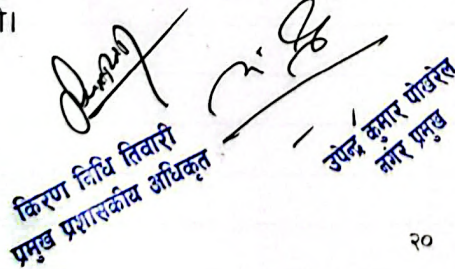 किरण निधि तिवारी
प्रमुख प्रशासकीय अधिकृत
उपेन्द्र कुमार पोखरेल
नगर प्रमुख
२०